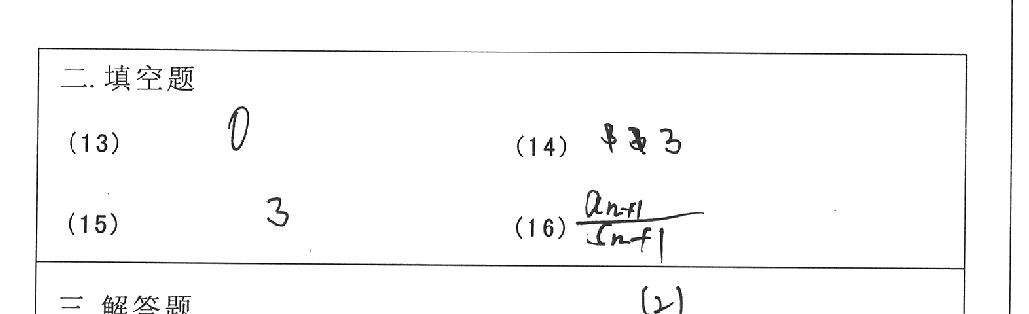 二.填空题
(13) 0 (14) 3
(15) 3 (16) a_{n+1}/S_{n+1}
三.解答题
(2)